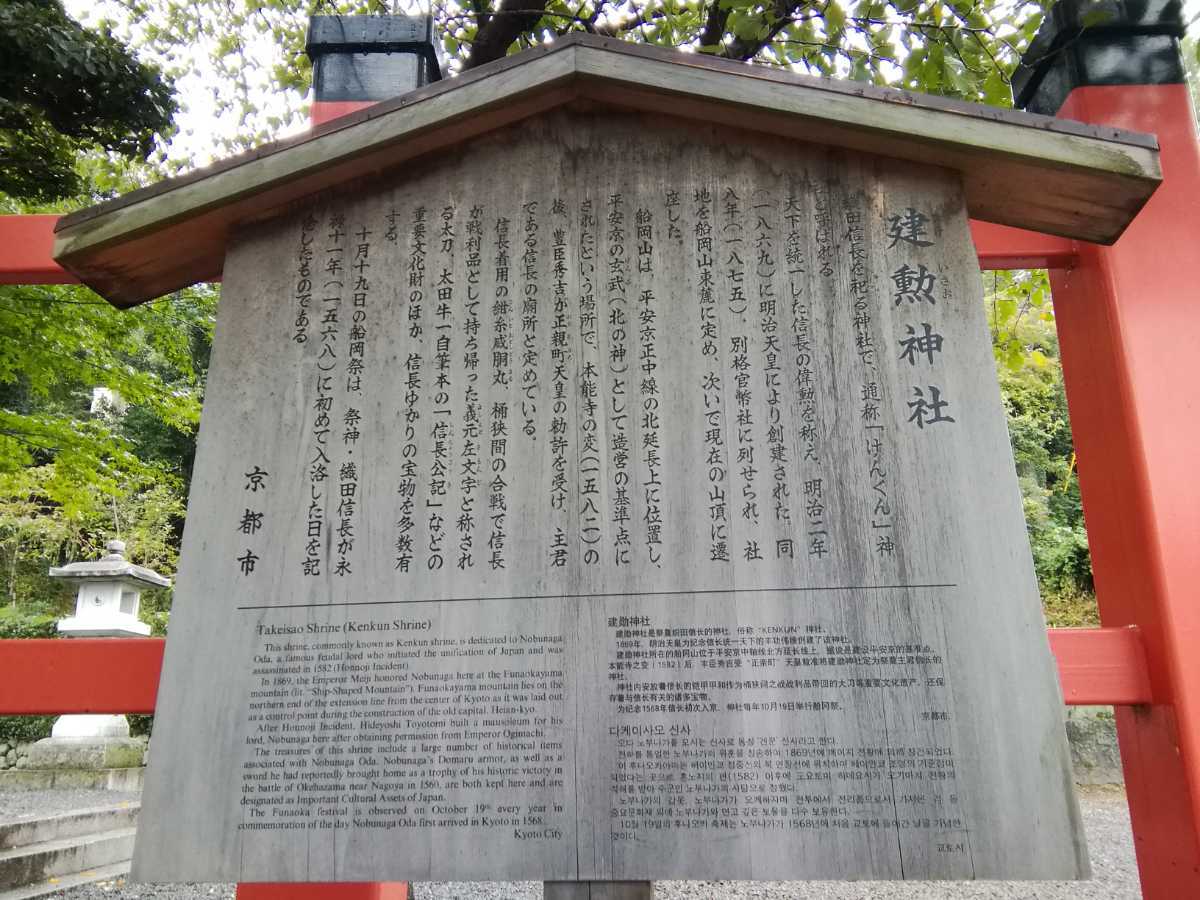 建勲神社
いさお
織田信長を祀る神社で、通称「けんくん」神
社と呼ばれる。
天下を統一した信長の偉勲を称え、明治二年
(一八六九)に明治天皇により創建された。同
八年(一八七五)、別格官幣社に列せられ、社
地を船岡山東麓に定め、次いで現在の山頂に遷
座した。
船岡山は、平安京正中線の北延長上に位置し、
平安京の玄武(北の神)として造営の基準点に
されたという場所で、本能寺の変(一五八二)の
後、豊臣秀吉が正親町天皇の勅許を受け、主君
である信長の廟所と定めている。
信長着用の紺糸威胴丸、桶狭間の合戦で信長
が戦利品として持ち帰った義元左文字と称され
る太刀、太田牛一自筆本の「信長公記」などの
重要文化財のほか、信長ゆかりの宝物を多数有
する。
十月十九日の船岡祭は、祭神・織田信長が永
禄十一年(一五六八)に初めて入洛した日を記
念したものである。
京都市
Takeisao Shrine (Kenkun Shrine)
This shrine, commonly known as Kenkun shrine, is dedicated to Nobunaga
Oda, a famous feudal lord who initiated the unification of Japan and was
assassinated in 1582 (Honnoji Incident).
In 1869, the Emperor Meiji honored Nobunaga here at the Funaokayama
mountain (lit. "Ship-Shaped Mountain"). Funaokayama mountain lies on the
northern end of the extension line from the center of Kyoto as it was laid out
as a control point during the construction of the old capital, Heian-kyo.
After Honnoji Incident, Hideyoshi Toyotomi built a mausoleum for his
lord, Nobunaga here after obtaining permission from Emperor Ogimachi.
The treasures of this shrine include a large number of historical items
associated with Nobunaga Oda. Nobunaga's Domaru armor, as well as a
sword he had reportedly brought home as a trophy of his historic victory in
the battle of Okehazama near Nagoya in 1560, are both kept here and are
designated as Important Cultural Assets of Japan.
The Funaoka festival is observed on October 19th every year in
commemoration of the day Nobunaga Oda first arrived in Kyoto in 1568.
Kyoto City
建勋神社
建勋神社是祭奠织田信长的神社，俗称“KENKUN”神社。
1869年，明治天皇为纪念信长统一天下的丰功伟绩创建了该神社。
建勋神社所在的船冈山位于平安京中轴线北方延长线上，据说是建设平安京的基准点。
本能寺之变(1582)后，丰臣秀吉受“正亲町”天皇敕准将建勋神社定为祭奠主君信长的
神社。
神社内安放着信长的铠甲甲和作为桶狭间之战战利品带回的大刀等重要文化遗产，还保
存着与信长有关的诸多宝物。
为纪念1568年信长初次入京，神社每年10月19日举行船冈祭。
京都市
다케이사오 신사
오다 노부나가를 모시는 신사로 통칭 '겐쿤' 신사라고 한다.
천하를 통일한 노부나가의 위훈을 칭송하여 1869년에 메이지 천황에 의해 창건되었다.
이 후나오카야마는 헤이안쿄 정중선의 북 연장선에 위치하며 헤이안쿄 조영의 기준점이
되었다는 곳으로, 혼노지의 변(1582) 이후에 도요토미 히데요시가 오기마치 천황의
칙허를 받아 주군인 노부나가의 사당으로 정했다.
노부나가의 갑옷, 노부나가가 오케하자마 전투에서 전리품으로서 가져온 검 등
중요문화재 외에 노부나가와 연고 깊은 보물을 다수 보유한다.
10월 19일의 후나오카 축제는 노부나가가 1568년에 처음 교토에 들어간 날을 기념한
것이다.
교토시